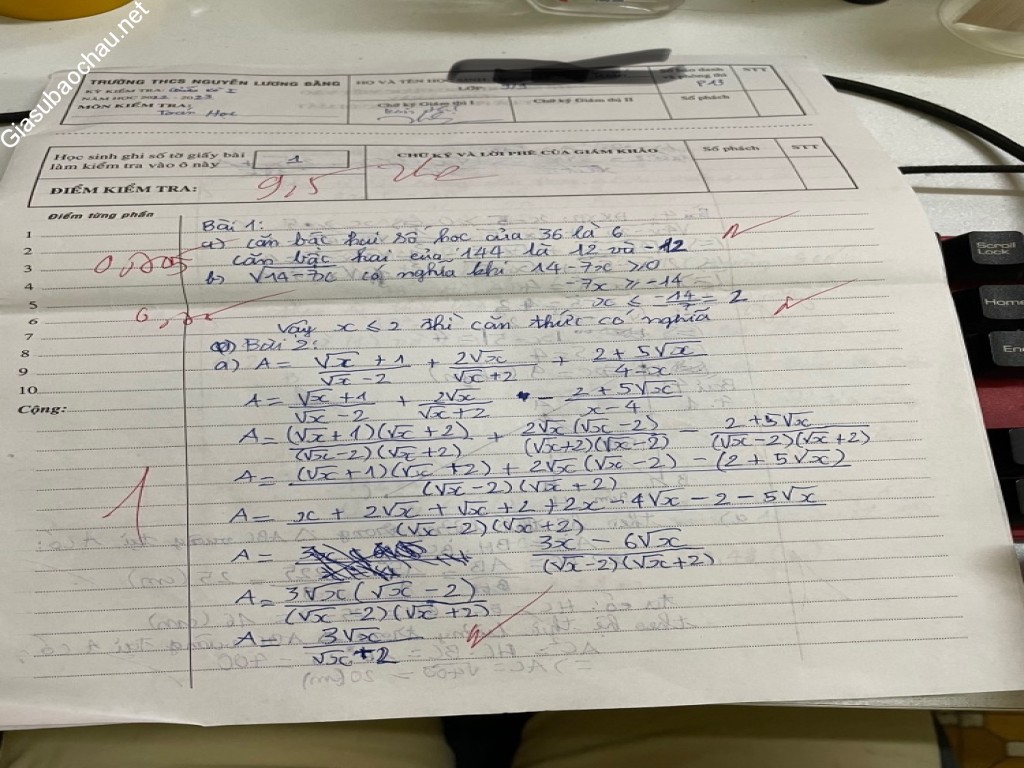 Giasubaochau.net
TRƯỜNG THCS NGUYỄN LƯƠNG BẰNG
HỌ VÀ TÊN HỌC SINH
STT
KỲ KIỂM TRA:
LỚP:
P13
NĂM HỌC 2022 - 2023
MÔN KIỂM TRA:
Toán Học
Chữ ký Giám thị I
Chữ ký Giám thị II
Số phách
Học sinh ghi số tờ giấy bài
làm kiểm tra vào ô này
1
CHỮ KÝ VÀ LỜI PHÊ CỦA GIÁM KHẢO
Số phách
STT
ĐIỂM KIỂM TRA:
9,5
Điểm từng phần
1
2
3
4
5
6
7
8
9
10
Cộng:
1
Bài 1:
a) Căn bậc hai số học của 36 là 6
Căn bậc hai của 144 là 12 và -12
b) √14-7x có nghĩa khi 14-7x ≥ 0
-7x ≥ -14
x ≤ -14/-7 = 2
Vậy x ≤ 2 thì căn thức có nghĩa
Bài 2:
a) A = (√x + 1)/(√x - 2) + 2√x/(√x + 2) + (2 + 5√x)/(4 - x)
A = (√x + 1)/(√x - 2) + 2√x/(√x + 2) - (2 + 5√x)/(x - 4)
A = (√x + 1)(√x + 2)/(√x - 2)(√x + 2) + 2√x(√x - 2)/(√x + 2)(√x - 2) - (2 + 5√x)/(√x - 2)(√x + 2)
A = ((√x + 1)(√x + 2) + 2√x(√x - 2) - (2 + 5√x))/(√x - 2)(√x + 2)
A = (x + 2√x + √x + 2 + 2x - 4√x - 2 - 5√x)/(√x - 2)(√x + 2)
A = (3x - 6√x)/(√x - 2)(√x + 2)
A = 3√x(√x - 2)/(√x - 2)(√x + 2)
A = 3√x/(√x + 2)
Scroll
Lock
Home